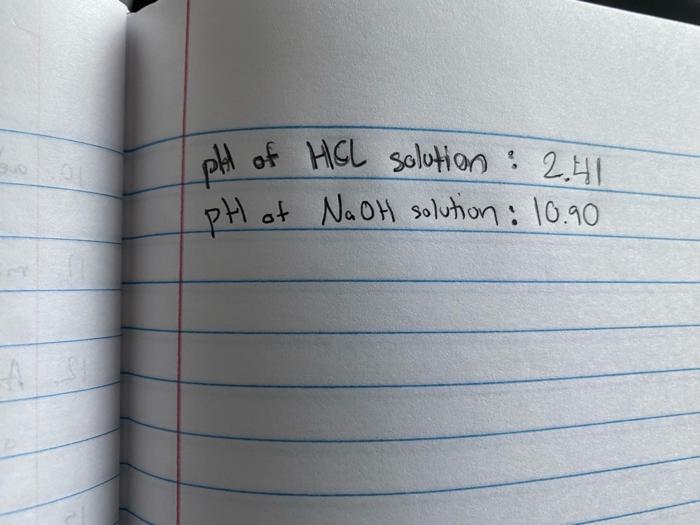 pH of HCL solution : 2.41
pH of NaOH solution : 10.90